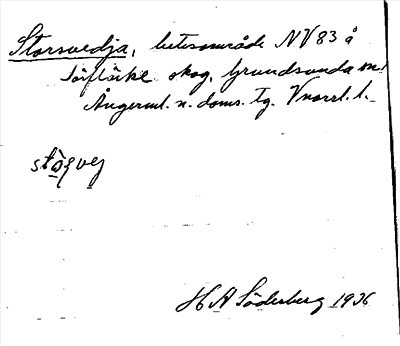 Storsvedja, betesområde NV 83 å
Töjflsike skog, Grundsunda sn.
Ångerml. n. doms. tg. Vnorrl. l.
stòṣveg
H A Söderberg 1936